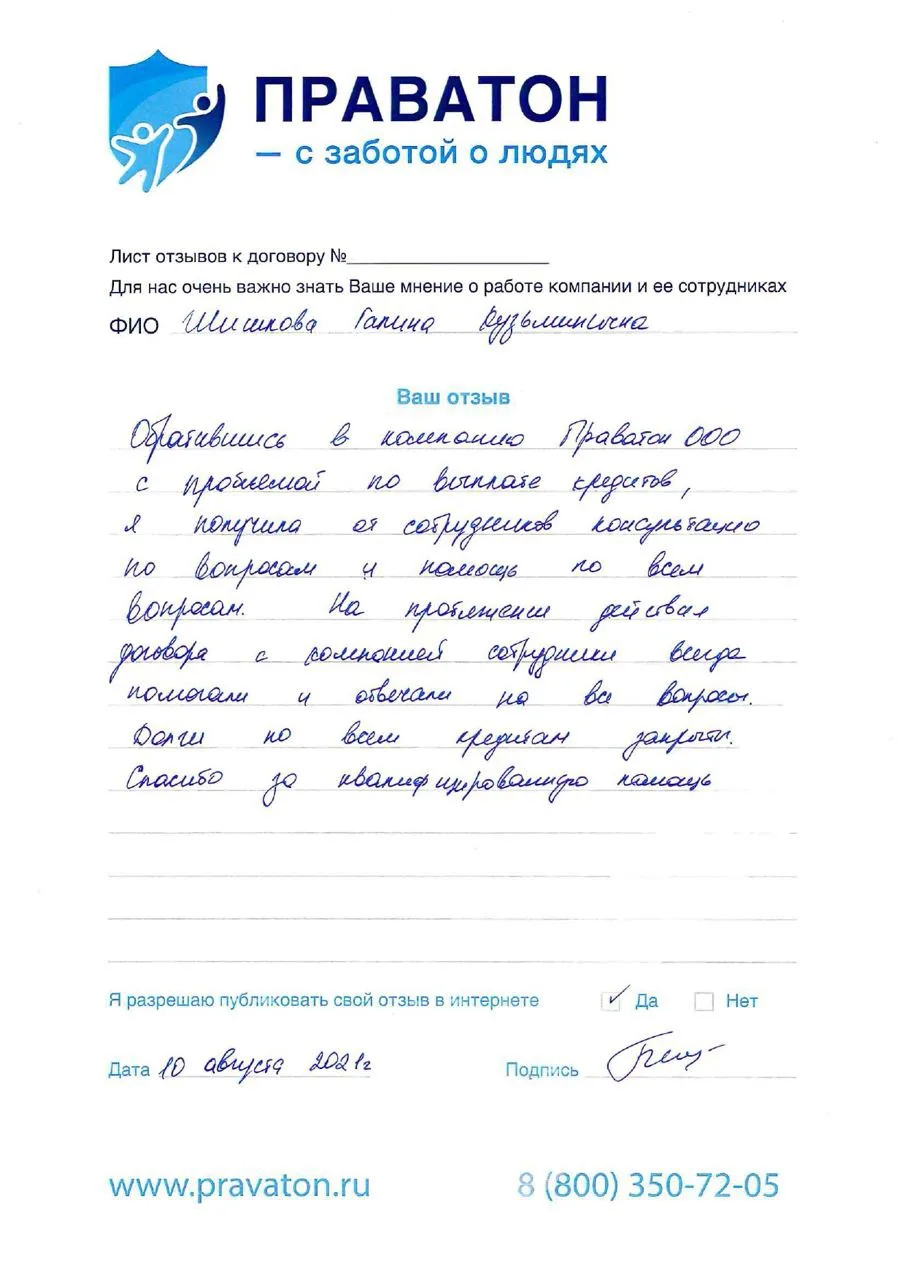 ПРАВАТОН
– с заботой о людях
Лист отзывов к договору №
Для нас очень важно знать Ваше мнение о работе компании и ее сотрудниках
ФИО Шишкова Галина Кузьминична
Ваш отзыв
Обратившись в компанию Праватон ООО
с проблемой по выплате кредитов,
я получила от сотрудников консультацию
по вопросам и помощь по всем
вопросам. На протяжении действия
договора с компанией сотрудники всегда
помогали и отвечали на все вопросы.
Долги по всем кредитам закрыты.
Спасибо за квалифицированную помощь
Я разрешаю публиковать свой отзыв в интернете Да Нет
Дата 10 августа 2021г Подпись
www.pravaton.ru 8 (800) 350-72-05